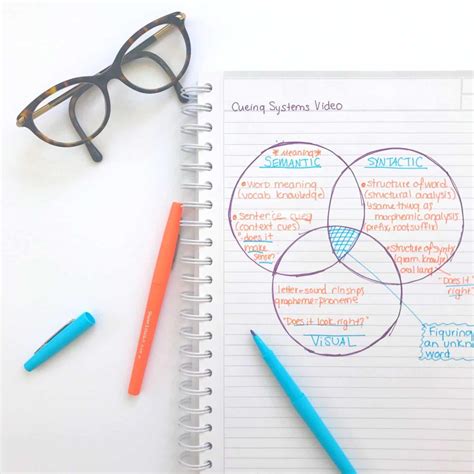 Cueing Systems Video
*meaning*
SEMANTIC
*word meaning
(vocab knowledge)
*sentence cues
(context cues)
"does it
make
sense"
SYNTACTIC
*structure of word
(structural analysis)
same thing as
morphemic analysis
prefix, root, suffix
*structure of
oral lang
"Does it
right"
letter-sound
grapheme-phoneme
"Does it look right?"
VISUAL
Figuring
an
word